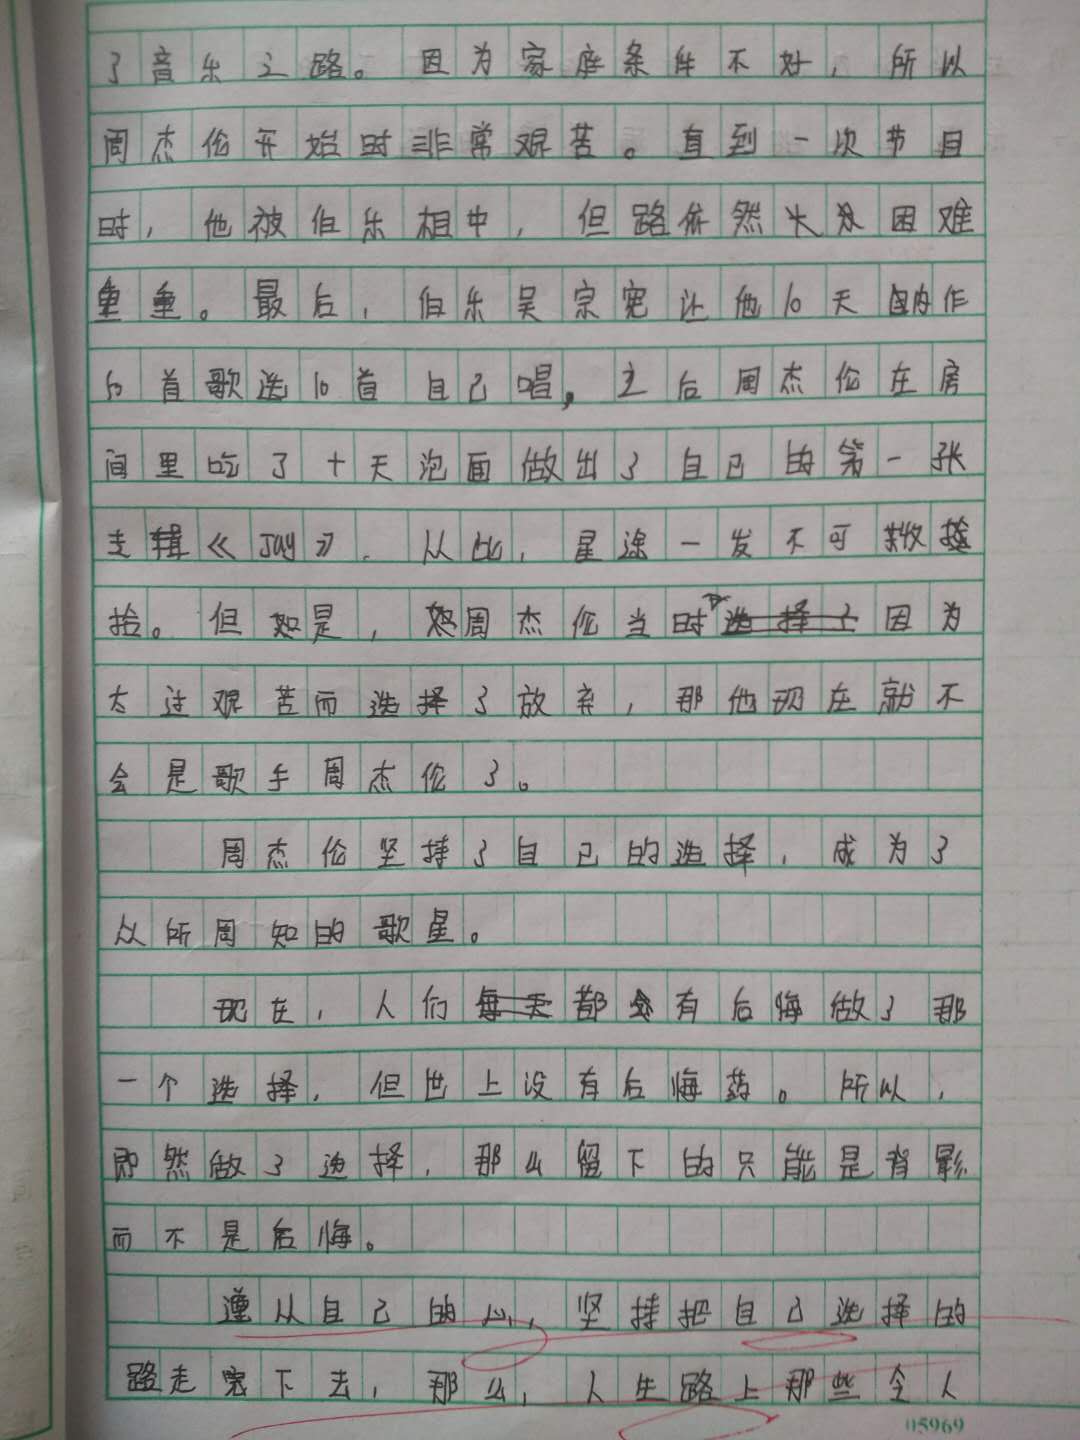 了音乐之路。因为家庭条件不好，所以
周杰伦开始时非常艰苦。直到一次节目
时，他被伯乐相中，但路依然长及困难
重重。最后，伯乐吴宗宪让他10天内作
50首歌选10首自己唱，之后周杰伦在房
间里吃了十天泡面做出了自己的第一张
专辑《Jay》，从此，星途一发不可收
拾。但如是，周杰伦当时因为
太过艰苦而选择了放弃，那他现在就不
会是歌手周杰伦了。
周杰伦坚持了自己的选择，成为了
众所周知的歌星。
现在，人们都会有后悔做了那
一个选择，但世上没有后悔药。所以，
即然做了选择，那么留下的只能是背影
而不是后悔。
遵从自己的心，坚持把自己选择的
路走宽下去，那么，人生路上那些令人
05969